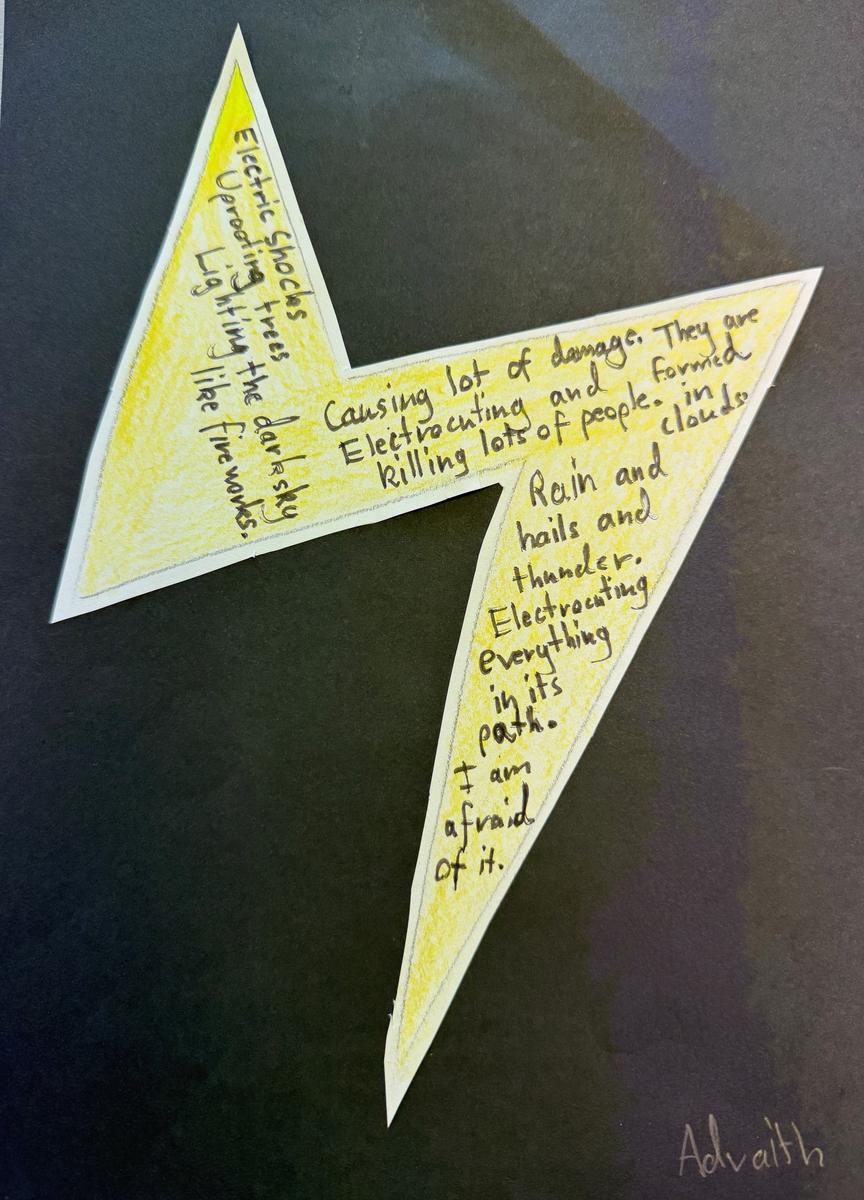 Electric Shocks
Uprooting trees
Lighting the dark sky
like fireworks.
Causing lot of damage. They are
Electrocuting and formed
killing lots of people. in
clouds.
Rain and
hails and
thunder.
Electrocuting
everything
in its
path.
I am
afraid
of it.
Advaith